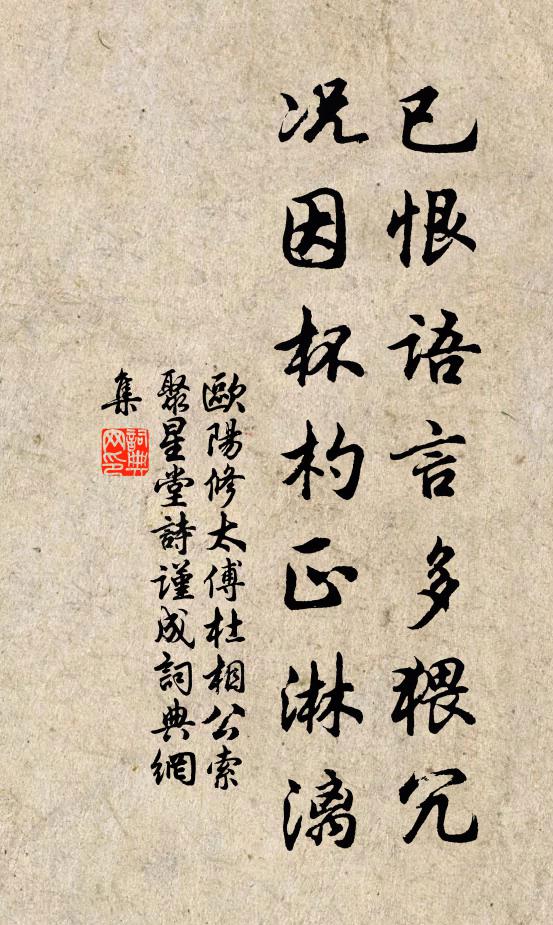 已恨語言多猥冗
况因杯杓正淋漓
歐陽修太傅杜相公索
聚星堂詩谨成詞典網
集
詞典
网印